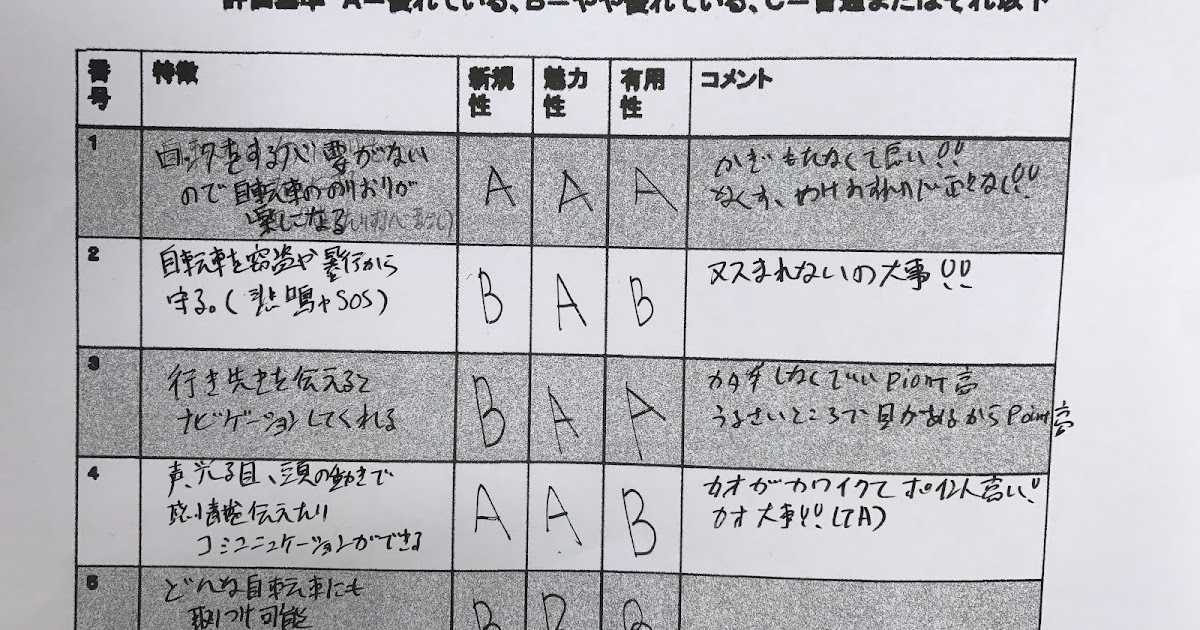 評価基準 A=優れている、B=やや優れている、C=普通またはそれ以下
番号 特徴 新規性 魅力性 有用性 コメント
1
をする必要がない
ので自転車ののりおりが
楽になる
A A A
かぎもたなくて良い!!
2
自転車を窃盗や暴行から
守る。(悲鳴やSOS)
B A B
ヌスまれないの大事!!
3
行き先を伝えると
ナビゲーションしてくれる
B A A
しなくていいPiont高
うるさいところで見があるからPoint高
4
声、光る目、頭の動きで
感情を伝えたり
コミュニュケーションができる
A A B
カオがカワイクてポイント高い!
カオ大事!!(TA)
5
どんな自転車にも
取つけ可能
B